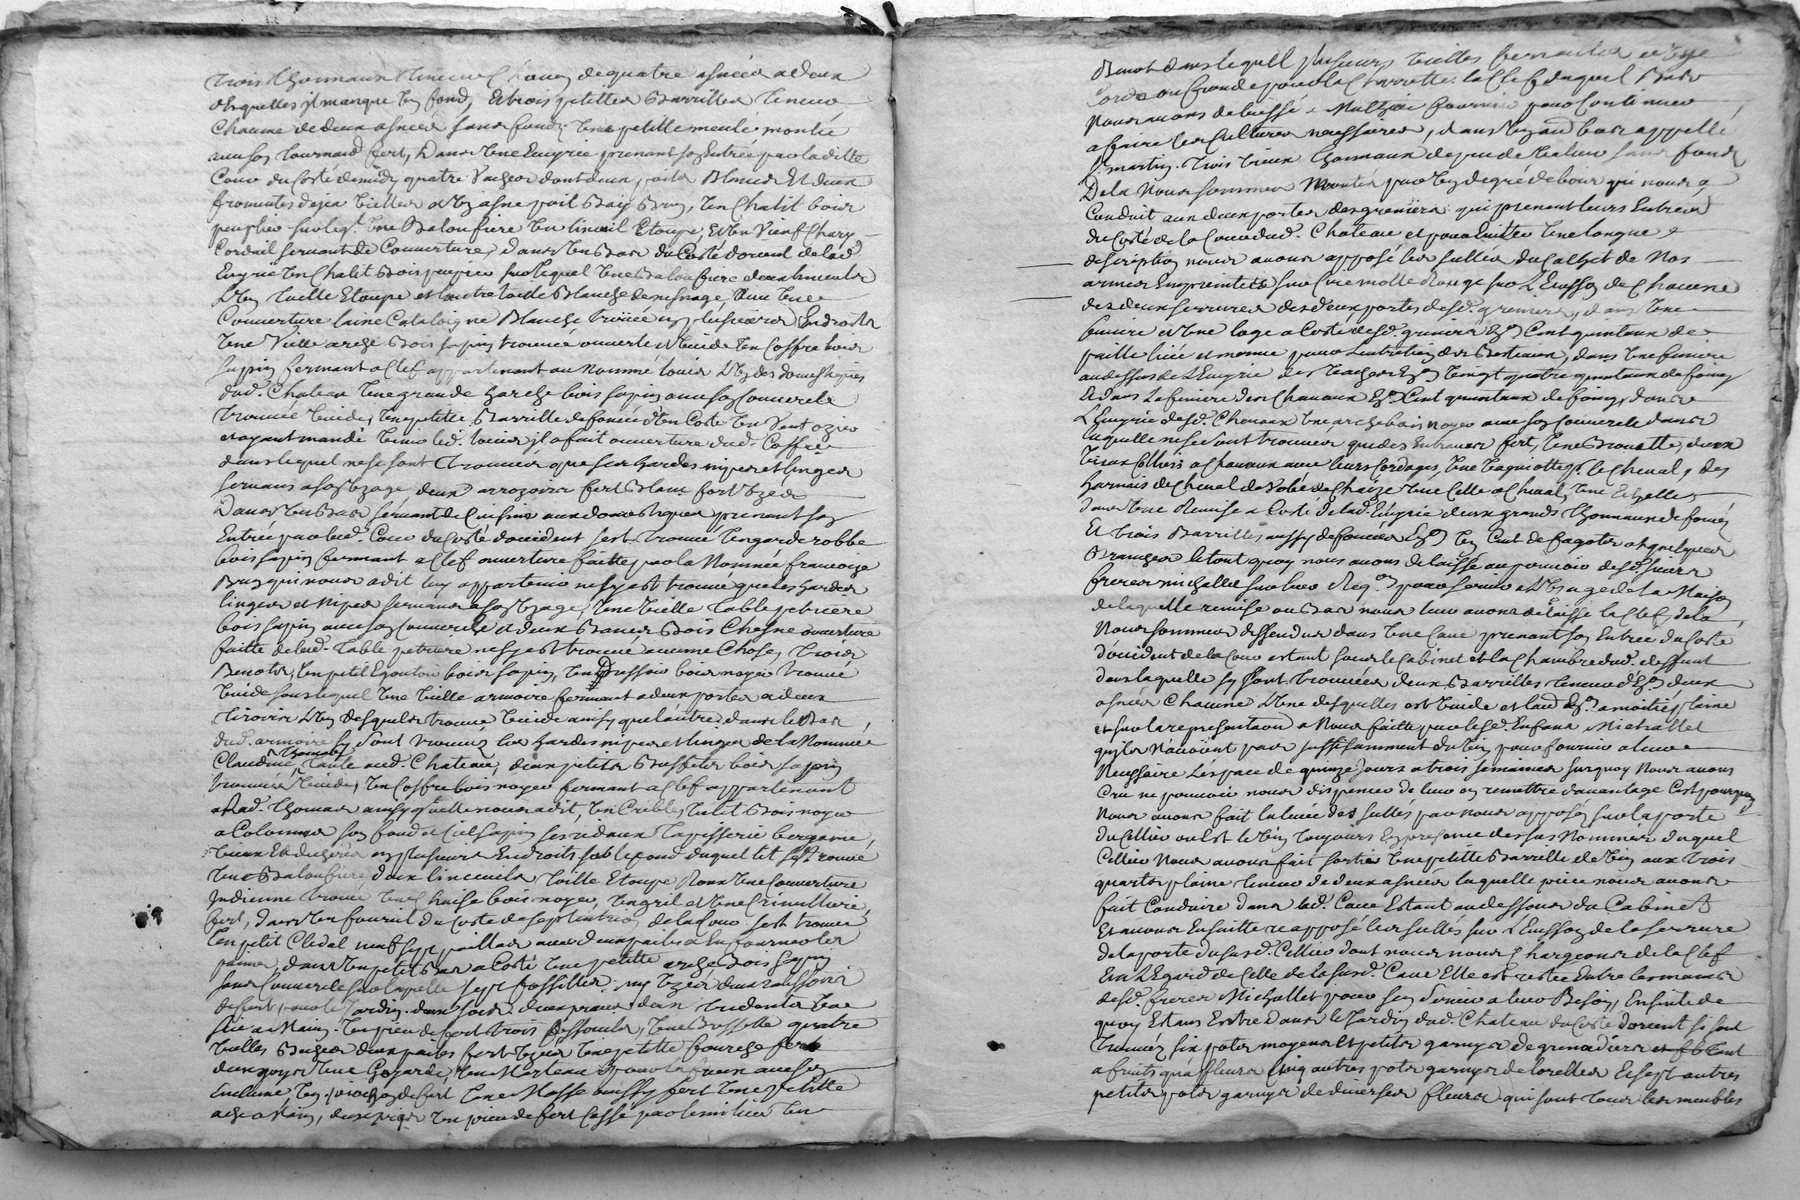 trois thonneaux teneur chacun de quatre asnées a deux
desquelles il manque un fond, et trois petittes barrilles teneur
chacune de deux asnées sans fond, une petitte meule montée
avec son tournard fert, dans une eicurie prenant son entrée par la ditte
cour du costé de midy quatre vaches dont deux poils blancs et deux
fromentes deja vielles et un asne poil bay brun, un chalit bois
peuplier sur leql. une baloufiere un linceuil etoupe, et un vieux
servant de couverture, dans un bas du costé d'orient de lad.
ecurie un chalit bois peuplier sur lequel une baloufiere deux linceuls
l'un tuelle etoupe et l'autre toile blanche de mesnage, avec une
couverture laine cataloigne blanche trouée en plusieurs endroits
une vielle arche bois sapin trouvée ouverte et vuide un coffre bois
sapin fermant a clef appartenant au nommé louis l'un des domestiques
dud. chateau une grande garche bois sapin avec son couvercle
trouvée vuide, une petitte barrille defoncée d'un costé un vant ozier
et ayant mandé venir led. louis il a fait ouverture dud. coffre
dans lequel ne se sont trouvées que ses hardes nipes et linges
servans a son uzage, deux arrozoirs fert blanc fort uzés
dans un bas servant de cuisine aux domestiques prenant son
entrée par lad. cour du costé d'occident s'est trouvé un garderobbe
bois sapin fermant a clef ouverture faitte par la nommée francoise
brun qui nous a dit luy appartenir ne s'y est trouvé que les hardes
linges et nipes servans a son uzage, une vielle table petriere
bois sapin avec son couvercle et deux bancs bois chesne ouverture
faitte de lad. table petriere ne s'y est trouvé aucune chose, trois
benots, un petit egoutoir bois sapin, un dressoir bois noyer trouvé
vuide sous lequel une vielle armoire fermant a deux portes a deux
tiroirs l'un desquels trouvé vuide ainsy que l'autre dans le bas
dud. armoire s'y sont trouvés les hardes nipes et linges de la nommée
Claudine Thomas tante aud. chateau, deux petits buffets bois sapin
trouvés vuides, un coffre bois noyer fermant a clef appartenant
a lad. Thomas ainsy qu'elle nous a dit, un crible, un lit bois noyer
a colonnes son fond et ciel sapin ses rideaux tapisserie bergame,
vieux et dechirés en plusieurs endroits sur le fond duquel lit s'est trouvé
une baloufiere deux linceuils toille etoupe roux une couverture
indienne trouée une chaise bois noyer, un gril et une crimilliere
fert, dans un fournil du costé de septentrion de la cour s'est trouvé
un petit neuf sept paillas avec deux pailes a enfourner les
pains, dans un petit bas a costé une petitte arche bois sapin
sans couvercle sur laquelle sept fossilles my uzés deux
de fert pour le jardin deux deux tridents une
scie a main un pieu de fert trois, une quatre
vielles buches deux pailes fert uzées une petitte fourche fert
deux goyes une gojarde, un marteau avec son
enclume, un piochon de fert une masse aussy fert une petitte
ache a main, deux un pieu de fert cassé par le milieu un
benot dans lequel plusieurs vielles ferrailles et une
corde ou fronde pour la charrette la clef duquel bas
nous avons delaissé a Mulzac fournier pour continuer
a faire les cultures necessaires, dans un aud. bas appellé
st martin trois vieux thonneaux de peu de valeur sans fonds
De la nous sommes montés par un degré de bois qui nous a
conduit aux deux portes des greniers qui prenent leurs entrées
du costé de la cour dud. chateau et pour eviter une longue
description nous avons apposé les scellés du cachet de nos
armes empreintes sur cire molle rouge sur l'eusson de chacune
des deux serrures des deux portes desd. greniers, dans une
feniere et une loge a costé desd. greniers cent quintaux de
paille liée et menue pour l'entretien des bestiaux, dans une feniere
au dessus de l'eicurie des vaches vingt quatre quintaux de foin
et dans la feniere des chevaux cent quintaux de foin, dans
l'eicurie desd. chevaux une arche bois noyer avec son couvercle dans
laquelle ne se sont trouvées que des entraves fert, une brouette, deux
vieux colliers a chevaux avec leurs cordages, une p. le cheval, des
harnais de cheval de volée de chaize une celle a cheval, une echelle
dans une remise a costé de lad. eicurie deux grands thonneaux defoncés
et trois barrilles aussy defoncées un cent de fagots et quelques
branches le tout quoy nous avons delaissé au pouvoir desd. sieurs
freres michallet sur leur req.on pour servir a l'usage de la maison
de laquelle remise ou bas nous leur avons delaissé la clef, de la
nous sommes dessendus dans une cave prenant son entrée du costé
d'occident de la cour estant sous le cabinet et la chambre dud. deffunt
dans laquelle s'y sont trouvées deux barrilles teneur deux
asnées chacune l'une desquelles est vuide et l'autre a moitié plaine
et sur la representation a nous faitte par lesd. enfans Michallet
qu'ils n'avoient pas suffisamment du vin pour fournir a leur
necessaire l'espace de quinze jours a trois semaines sur quoy nous avons
cru ne pouvoir nous dispencer de leur en remettre davantage c'est pourquoy
nous avons fait la levée des sellés par nous apposés sur la porte
du cellier ou est le vin toujours en presence des sus nommés duquel
cellier nous avons fait sortir une petitte barrille de vin aux trois
quarts plaine teneur de deux asnées laquelle piece nous avons
fait conduire dans lad. cave estant au dessous du cabinet
et avons ensuitte reapposé les sellés sur l'eusson de la serrure
de la porte du susd. cellier dont nous nous chargeons de la clef
et a l'egard de celle de la susd. cave elle est restée entre les mains
desd. freres Michallet pour s'en servir a leur besoin, ensuite de
quoy etans entrés dans le jardin dud. chateau du costé d'orient si sont
trouvés six pots moyens et petits garnys de grenadiers
a fruits qu'a fleurs cinq autres pots garnys de loreilles et sept autres
petits pots garnys de diverses fleurs qui sont tous les meubles